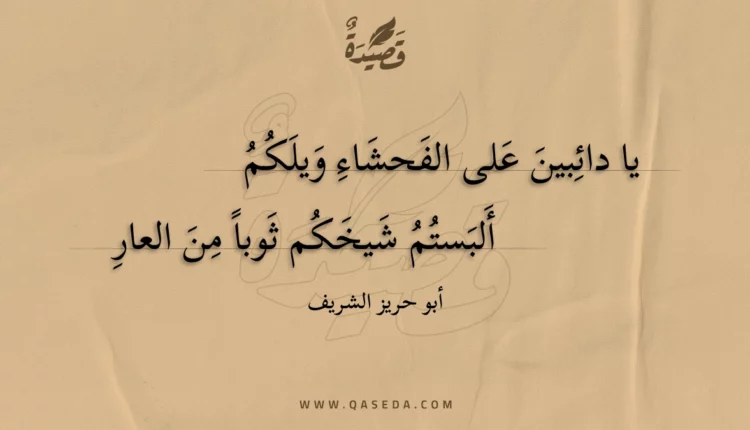 قَصِيدَةٌ
يا دائِبينَ عَلى الفَحشَاءِ وَيلَكُمُ
أَلبَستُمُ شَيخَكُم ثَوباً مِنَ العارِ
أبو حريز الشريف
WWW.QASEDA.COM